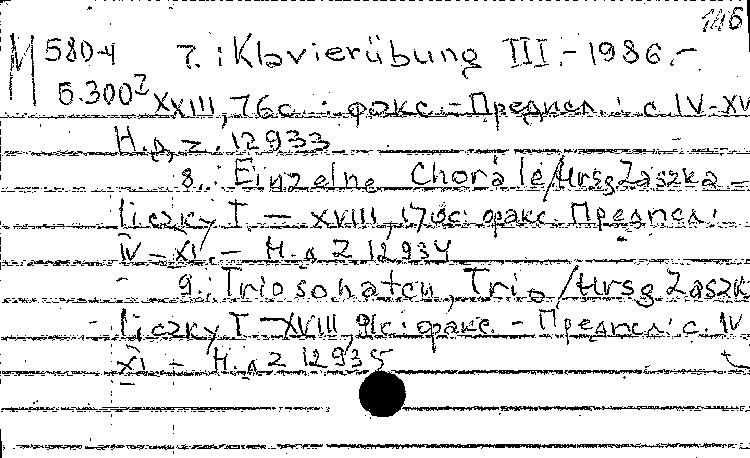 M 580-4 7.: Klavierübung III.- 1986.-
5.300 XXIII, 76с.: факс.- Предисл.: с. IV-XV
Н.д.z. 12933
8.: Einzelne Choräle/Hrsg Zaszka-
liczky T - XVIII, с: факс. Предисл:
IV - XI. - Н.д Z 12934
9.: Triosonaten, Trio/Hrsg Zaszk
liczky T - XVIII, 91с: факс. - Предисл: с. IV
XI - Н.д Z 12935